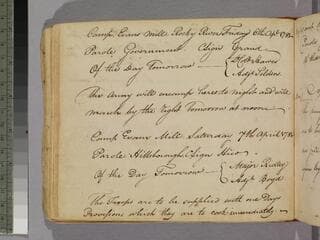 Camp Evans Mill Rocky River Friday 6th Apl 178
Parole Government CSign Grand
Of the Day Tomorrow
Adjt Tilden
The Army will encamp here to night and will
march by the Right Tomorrow at noon
Camp Evans Mill Saturday 7th April 178
Parole Hillsborough CSign Hico
Of the Day Tomorrow { Major Ridley
Adjt Boyd
The Troops are to be supplied with one Days
Provisions which they are to cook immediately